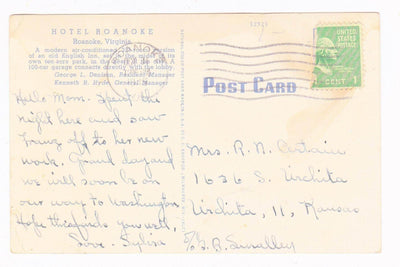 HOTEL ROANOKE
Roanoke, Virginia
A modern air-conditioned
of an old English Inn, set in the
its own ten-acre park, in the heart of the city. A
100-car garage connects directly with the lobby.
George L. Denison, Resident Manager
Kenneth R. Hyde, General Manager
Hello Mom. Spent the
night here and saw
off to her new
work. Grand day and
we will soon be on
our way to Washington
Hope this finds you well,
Love. Sylvia
ROANOKE
UNITED STATES
POSTAGE
CENT 1
POST CARD
Mrs. R. N.
1636 S. Wichita
Wichita, 11, Kansas
B. Smalley